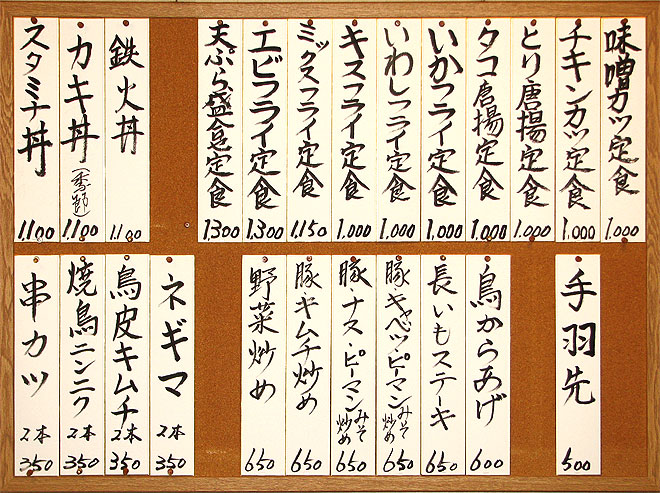 味噌カツ定食 1.000
チキンカツ定食 1.000
とり唐揚定食 1.000
タコ唐揚定食 1.000
いかフライ定食 1.000
いわしフライ定食 1.000
キスフライ定食 1.000
ミックスフライ定食 1.150
エビフライ定食 1.300
天ぷら盛合定食 1.300
鉄火丼 1.100
カキ丼 1.100
スタミナ丼 1.100
手羽先 500
鳥からあげ 600
長いもステーキ 650
豚・キャベツ・ピーマンみそ炒め 650
豚・ナス・ピーマンみそ炒め 650
豚・キムチ炒め 650
野菜炒め 650
ネギマ 2本 350
鳥皮キムチ 2本 350
焼鳥ニンニク 2本 350
串カツ 2本 350